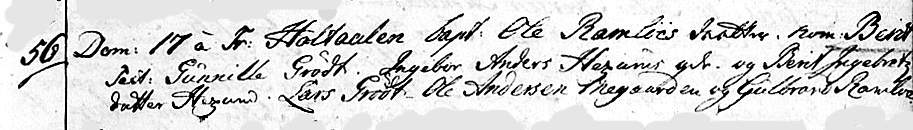 56 Dom: 17 à Tr: Holtaalen bapt: Ole Ramloes daatter. nom: Berit
Test: Gunnille Grödt. Ingebor Anders Hezaunes qdr. og Berit Ingebrets
datter Hezaund. Lars Grödt. Ole Andersen Moegaarden og Gulbrand Ramloe